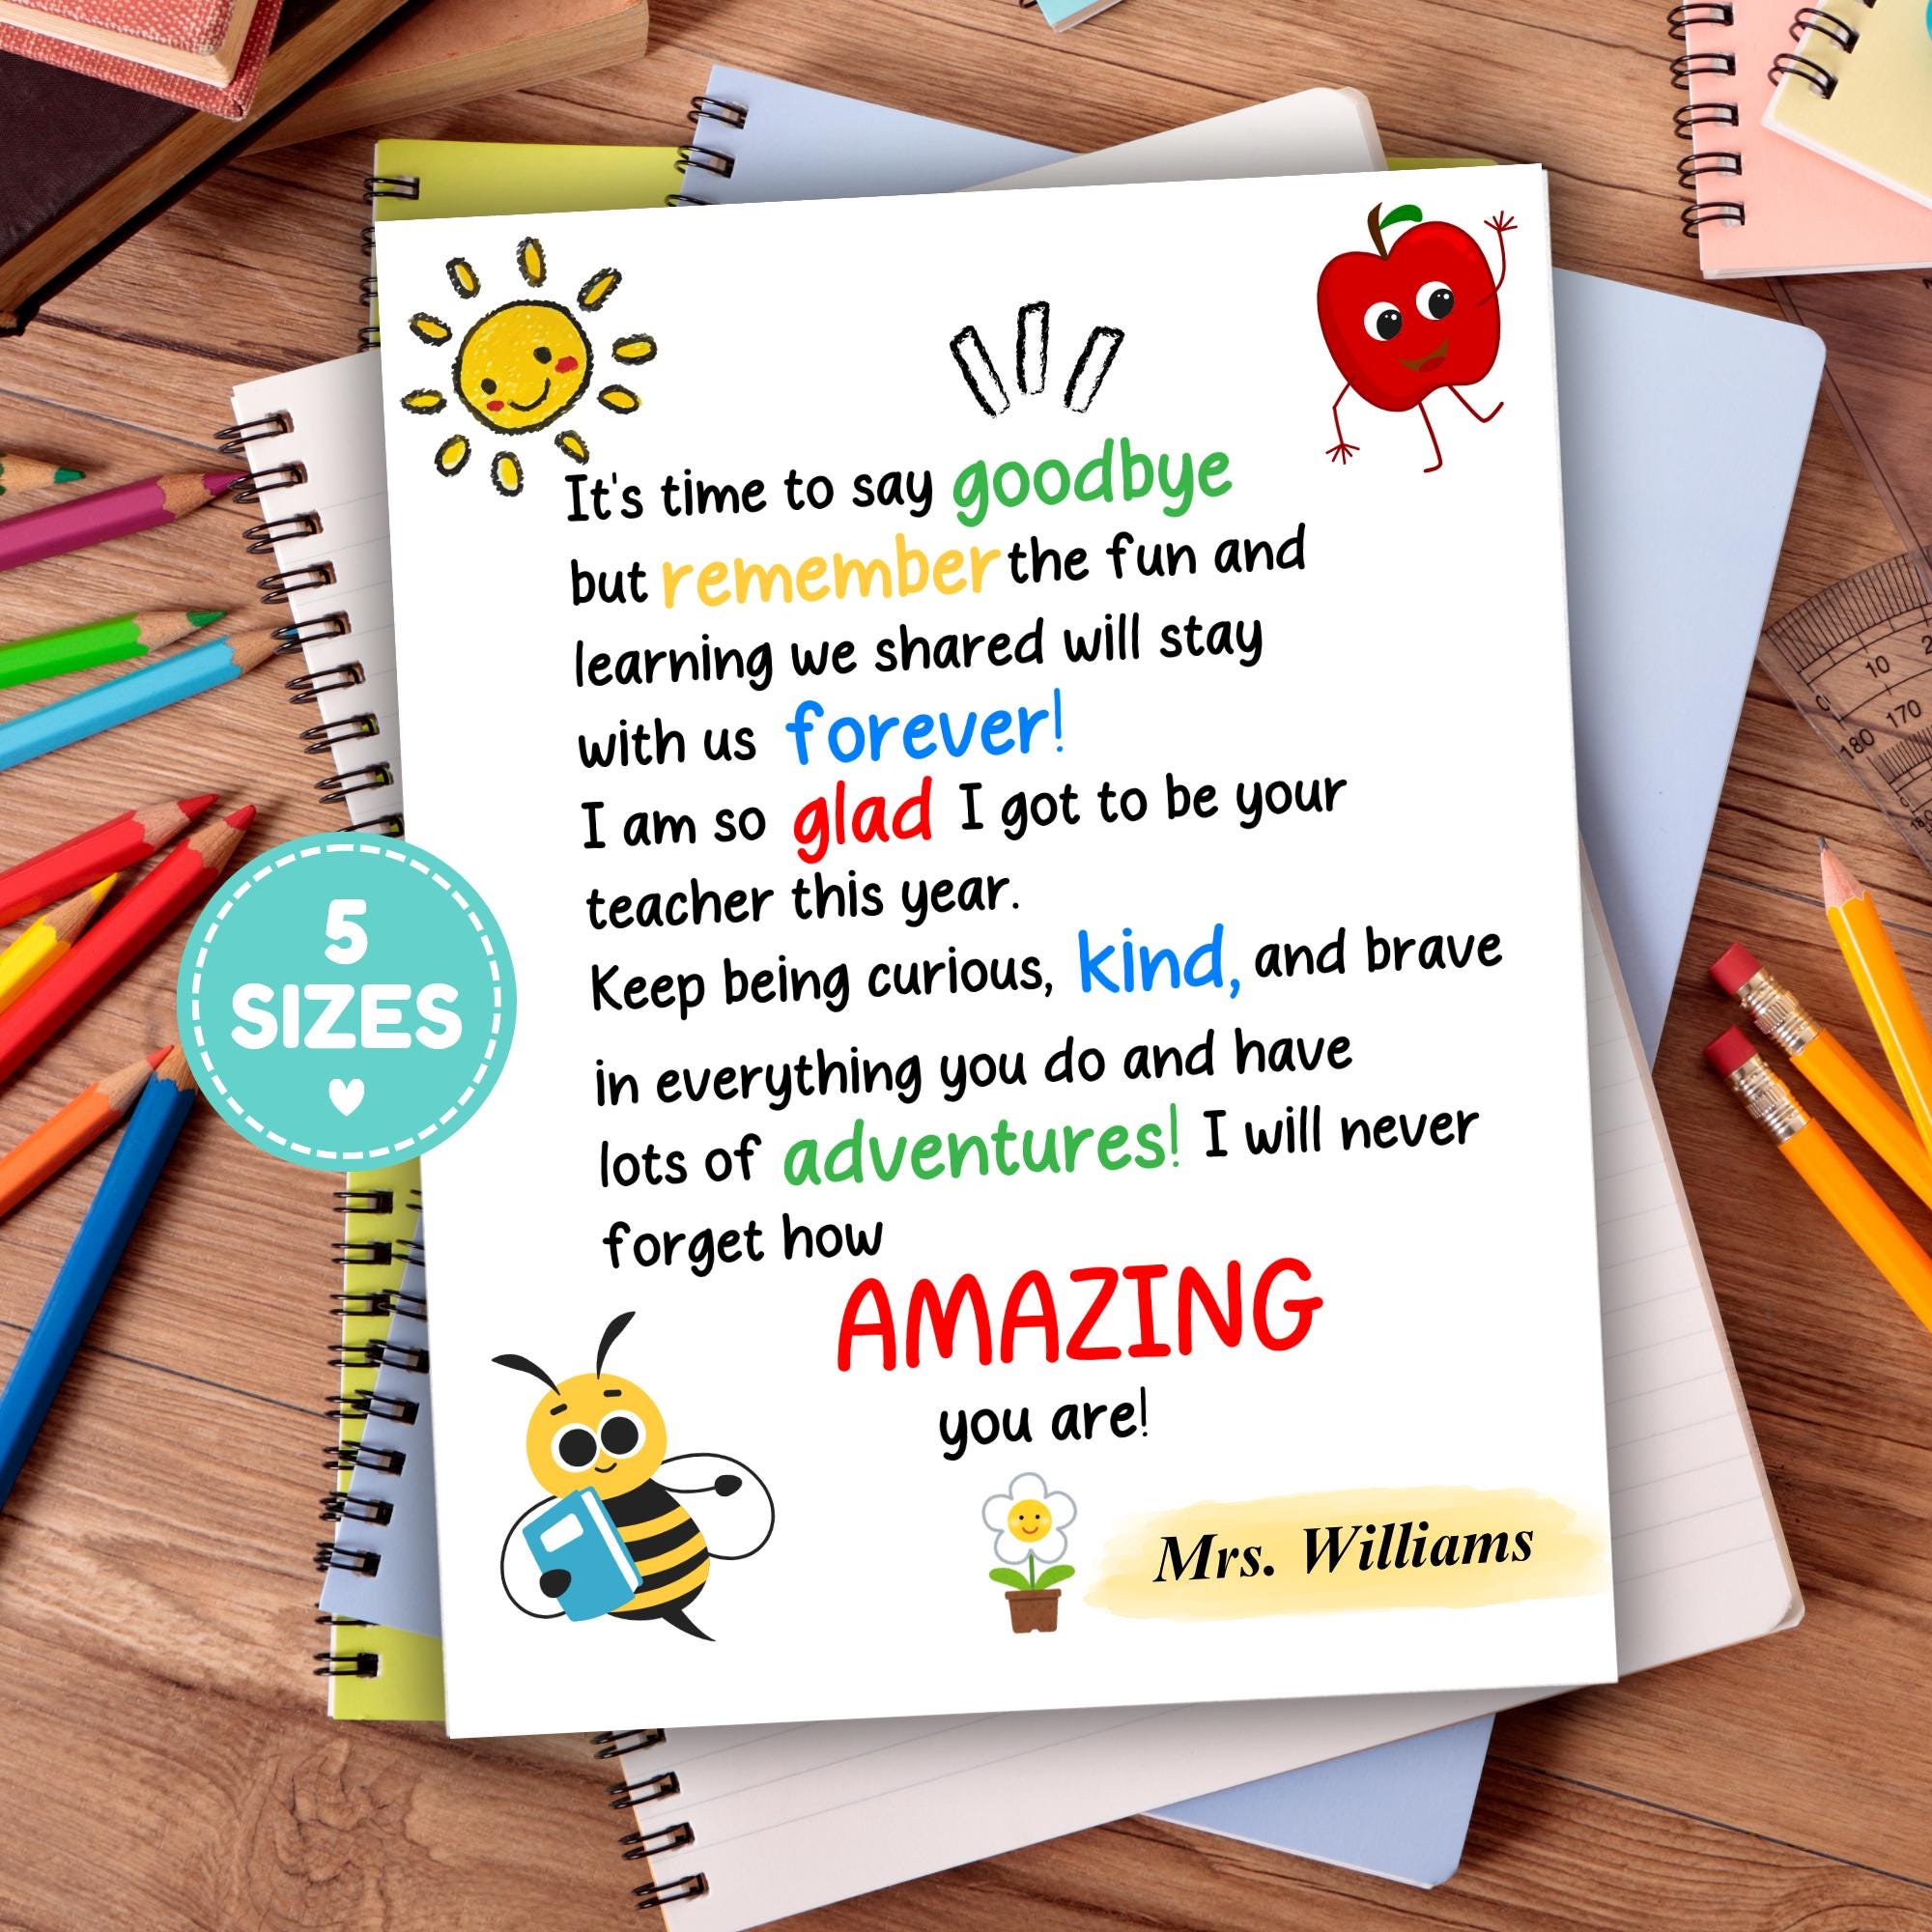 It's time to say goodbye
but remember the fun and
learning we shared will stay
with us forever!
I am so glad I got to be your
teacher this year.
Keep being curious, kind, and brave
in everything you do and have
lots of adventures! I will never
forget how
AMAZING
you are!
Mrs. Williams
5
SIZES
10
170
180